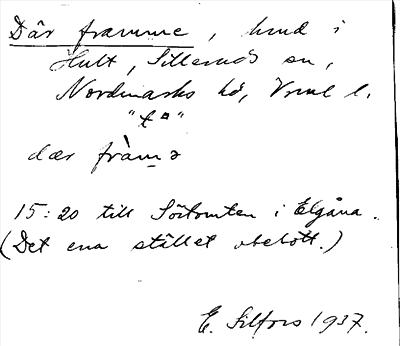 Där framme, hmd i
Hult, Silleruds sn,
Nordmarks hd, Vrml l.
dær fràm̠ə
15:20 till Sörtomten i Elgåna.
(Det ena stället obebott.)
E. Silfors 1937.